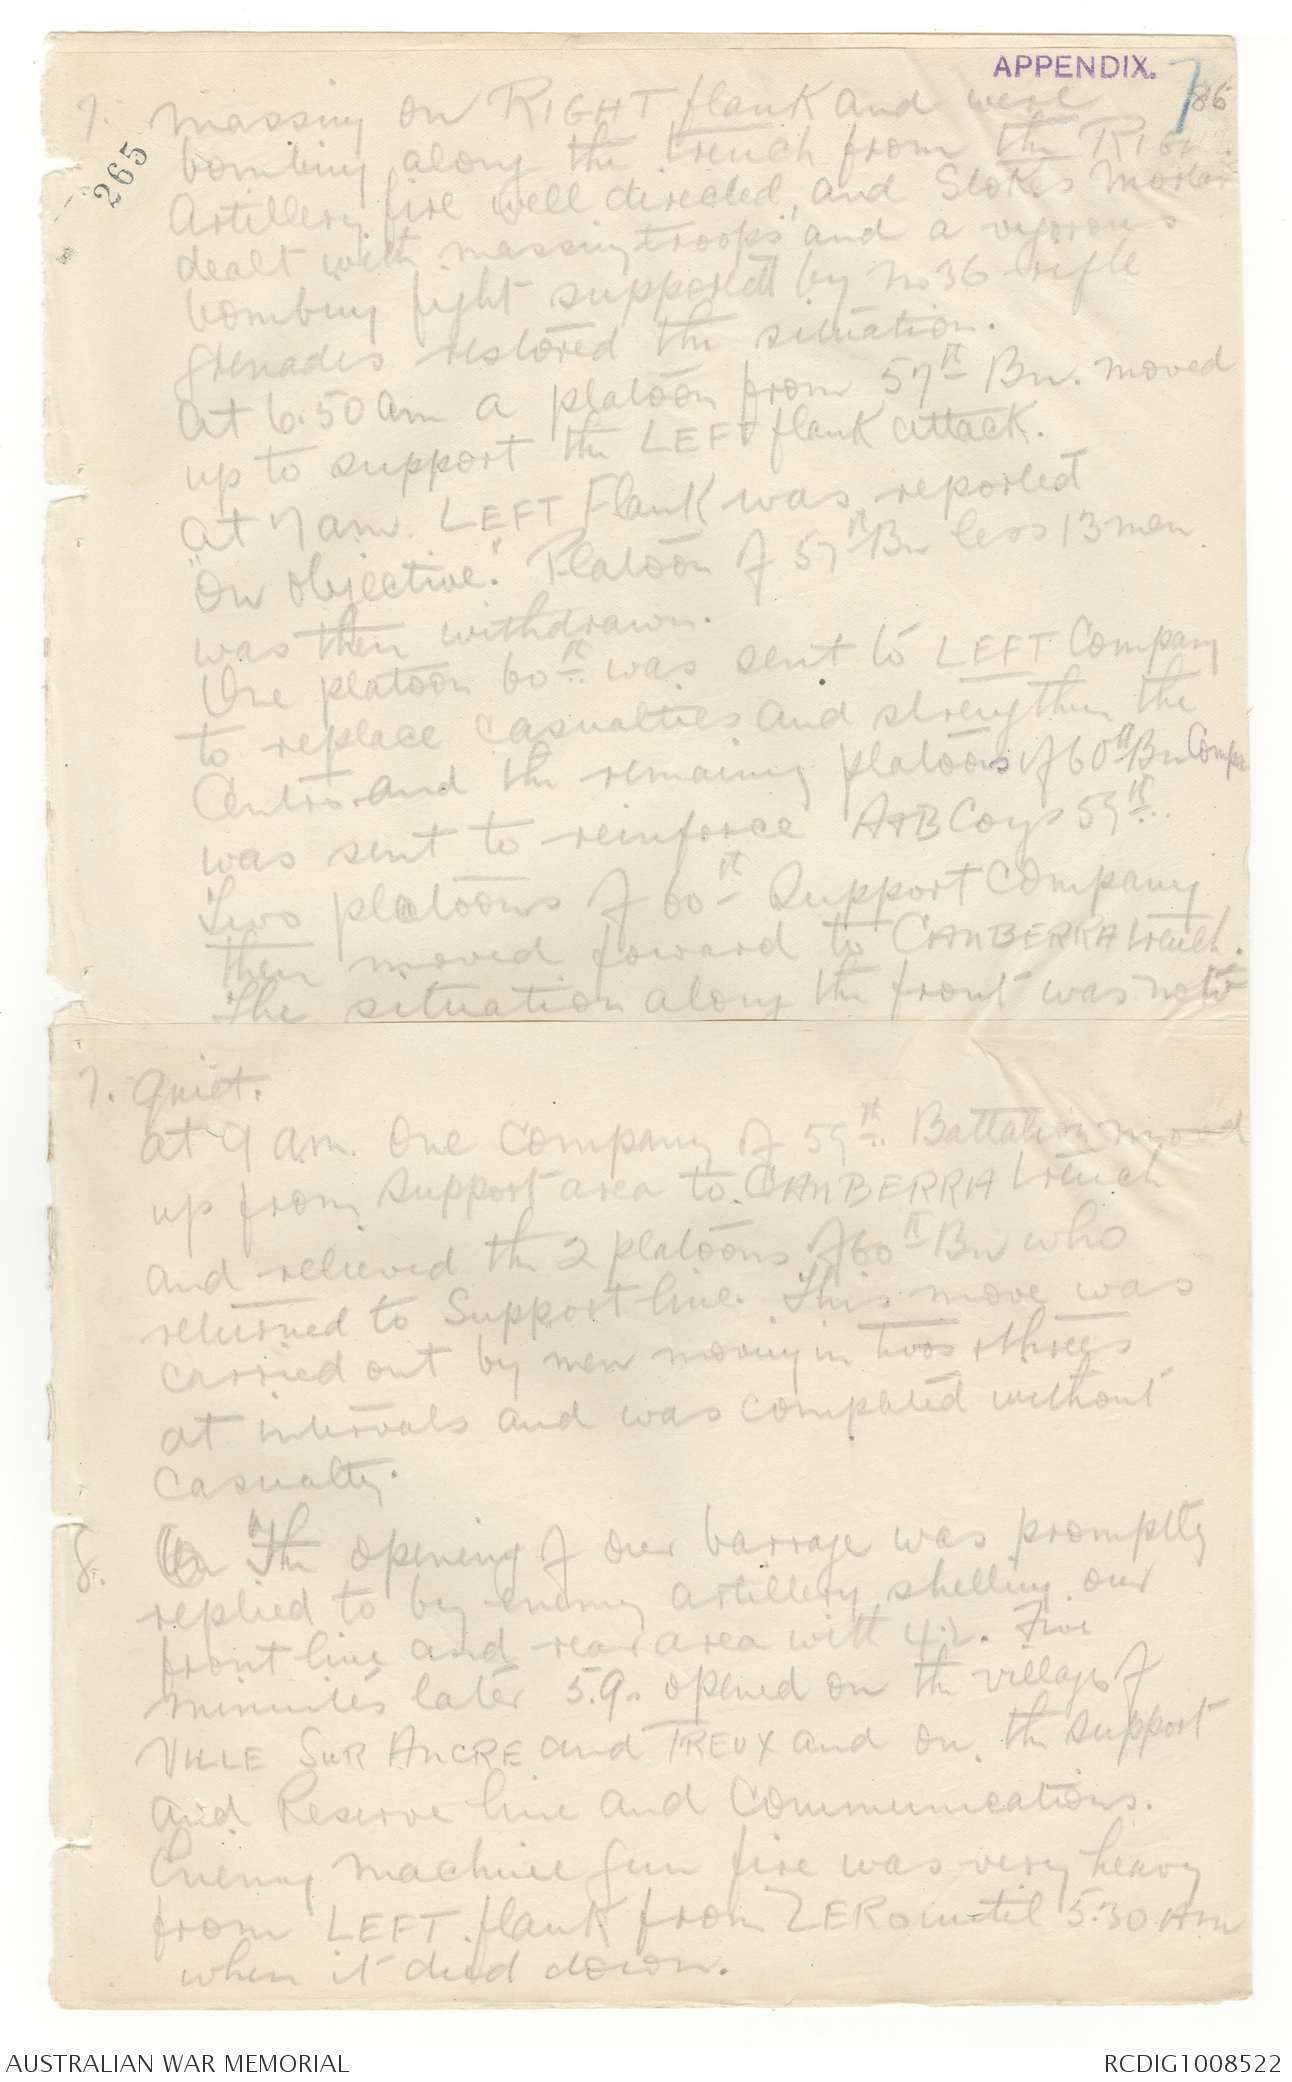 APPENDIX. 7
86
265
7. massing on RIGHT flank and were
bombing along the trench from the RIGH
Artillery fire well directed, and Stokes Mortar
dealt with massing troops and a vigorous
bombing fight supported by No 36 rifle
grenades restored the situation.
At 6.50 am a platoon from 57th Bn. moved
up to support the LEFT flank attack.
At 7 am. LEFT Flank was reported
"On objective." Platoon of 57th Bn less 13 men
was then withdrawn.
One platoon 60th was sent to LEFT Company
to replace casualties and strengthen the
Centre and the remaining platoons of 60th Bn Compa
was sent to reinforce A & B Coys 59th.
Two platoons of 60th Support Company
then moved forward to CANBERRA trench.
The situation along the front was now
7. quiet.
At 9 am. One Company of 59th Battalion moved
up from support area to CANBERRA trench
and relieved the 2 platoons of 60th Bn who
returned to Support line. This move was
carried out by men moving in twos & threes
at intervals and was compated without
casualty.
8. On The opening of our barrage was promptly
replied to by enemy artillery shelling our
front line and rear area with 4.2. Five
minutes later 5.9s opened on the village of
VILLE SUR ANCRE and TREUX and on the support
and Reserve line and Communications.
Enemy machine gun fire was very heavy
from LEFT flank from ZERO until 5.30 am
when it died down.
AUSTRALIAN WAR MEMORIAL
RCDIG1008522